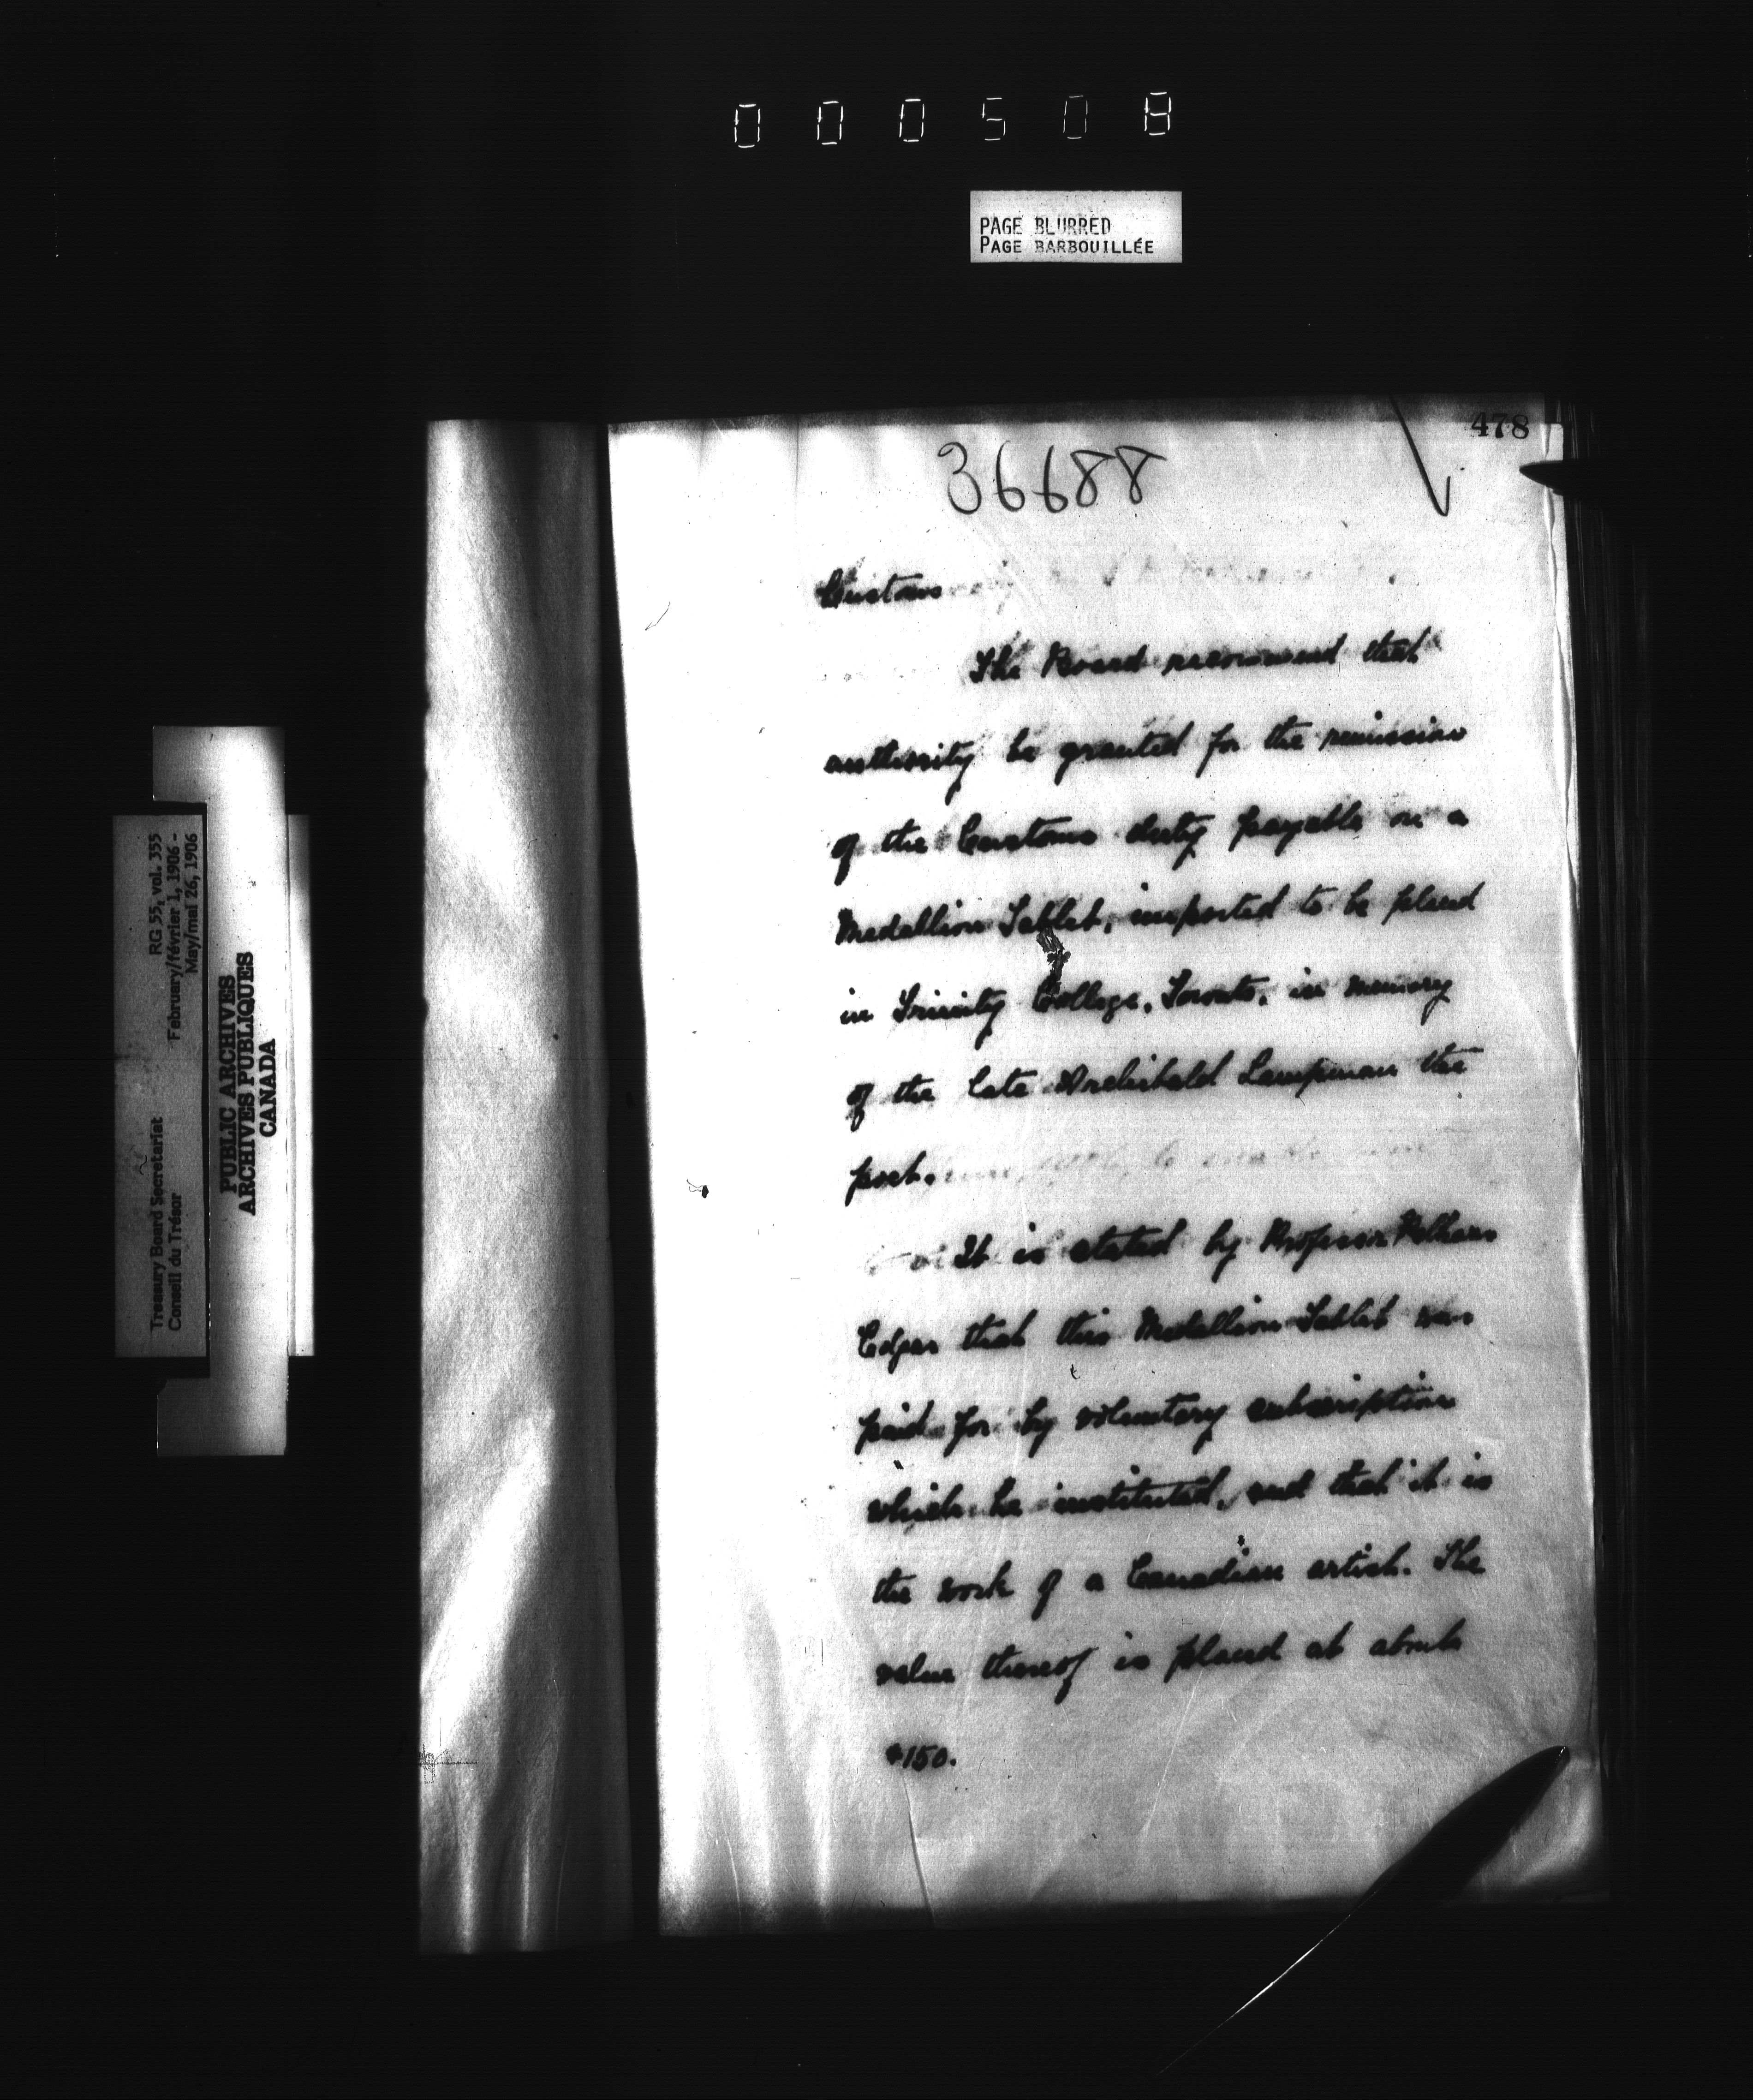 000508
PAGE BLURRED
PAGE BARBOUILLÉE
478
36688
Customs
The Board recommend that
authority be granted for the remission
of the Customs duty payable on a
Medallion Tablet, imported to be placed
in Trinity College, Toronto, in memory
of the late Archibald Lampman the
poet.
It is stated by Professor Pelham
Edgar that this Medallion Tablet was
paid for by voluntary subscription
which he instituted, and that it is
the work of a Canadian artist. The
value thereof is placed at about
$150.
Treasury Board Secretariat RG 55, vol. 355
Conseil du Trésor February/février 1, 1906 -
May/mai 26, 1906
PUBLIC ARCHIVES
ARCHIVES PUBLIQUES
CANADA